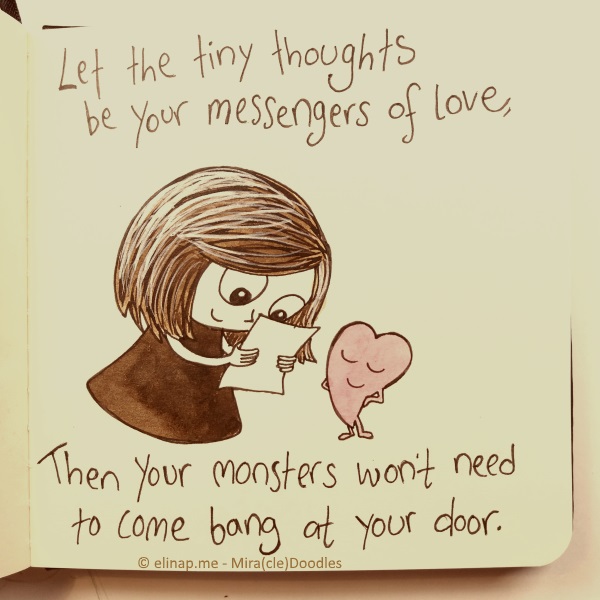 Let the tiny thoughts
be your messengers of love,
Then your monsters won't need
to come bang at your door.
© elinap.me - Mira(cle)Doodles